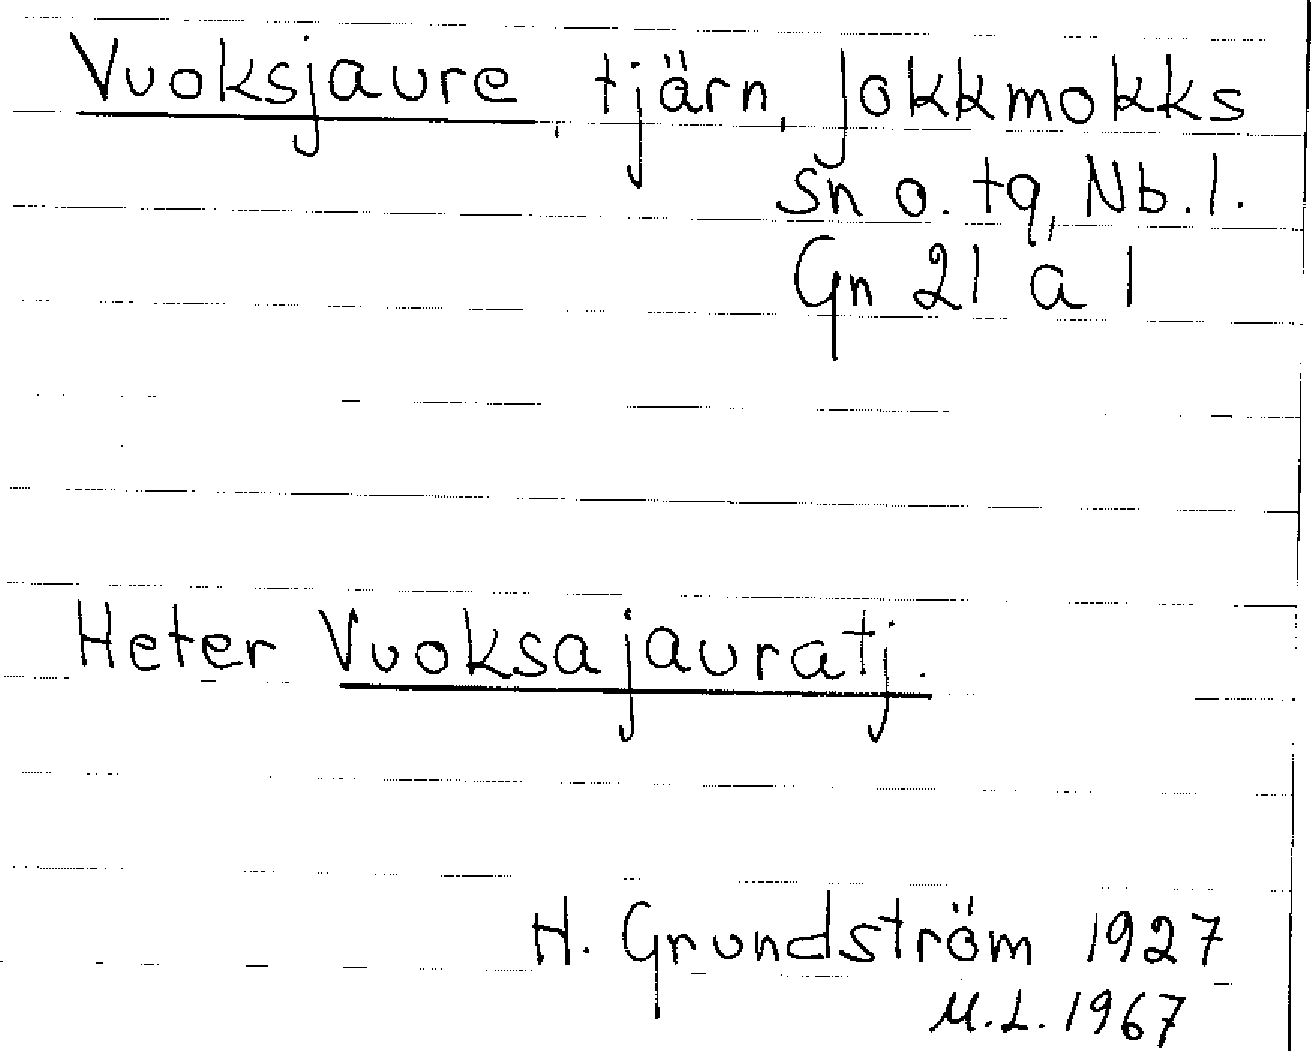 Vuoksjaure, tjärn, Jokkmokks
sn o. tg, Nb.l.
Gn 21 a 1
Heter Vuoksajauratj.
H. Grundström 1927
M.L. 1967